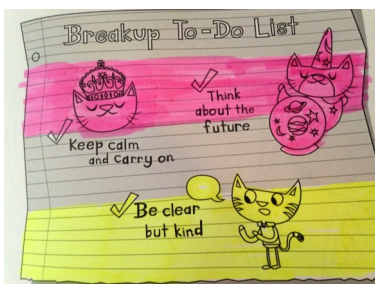 Breakup To-Do List
Keep calm
and carry on
Think
about the
future
Be clear
but kind